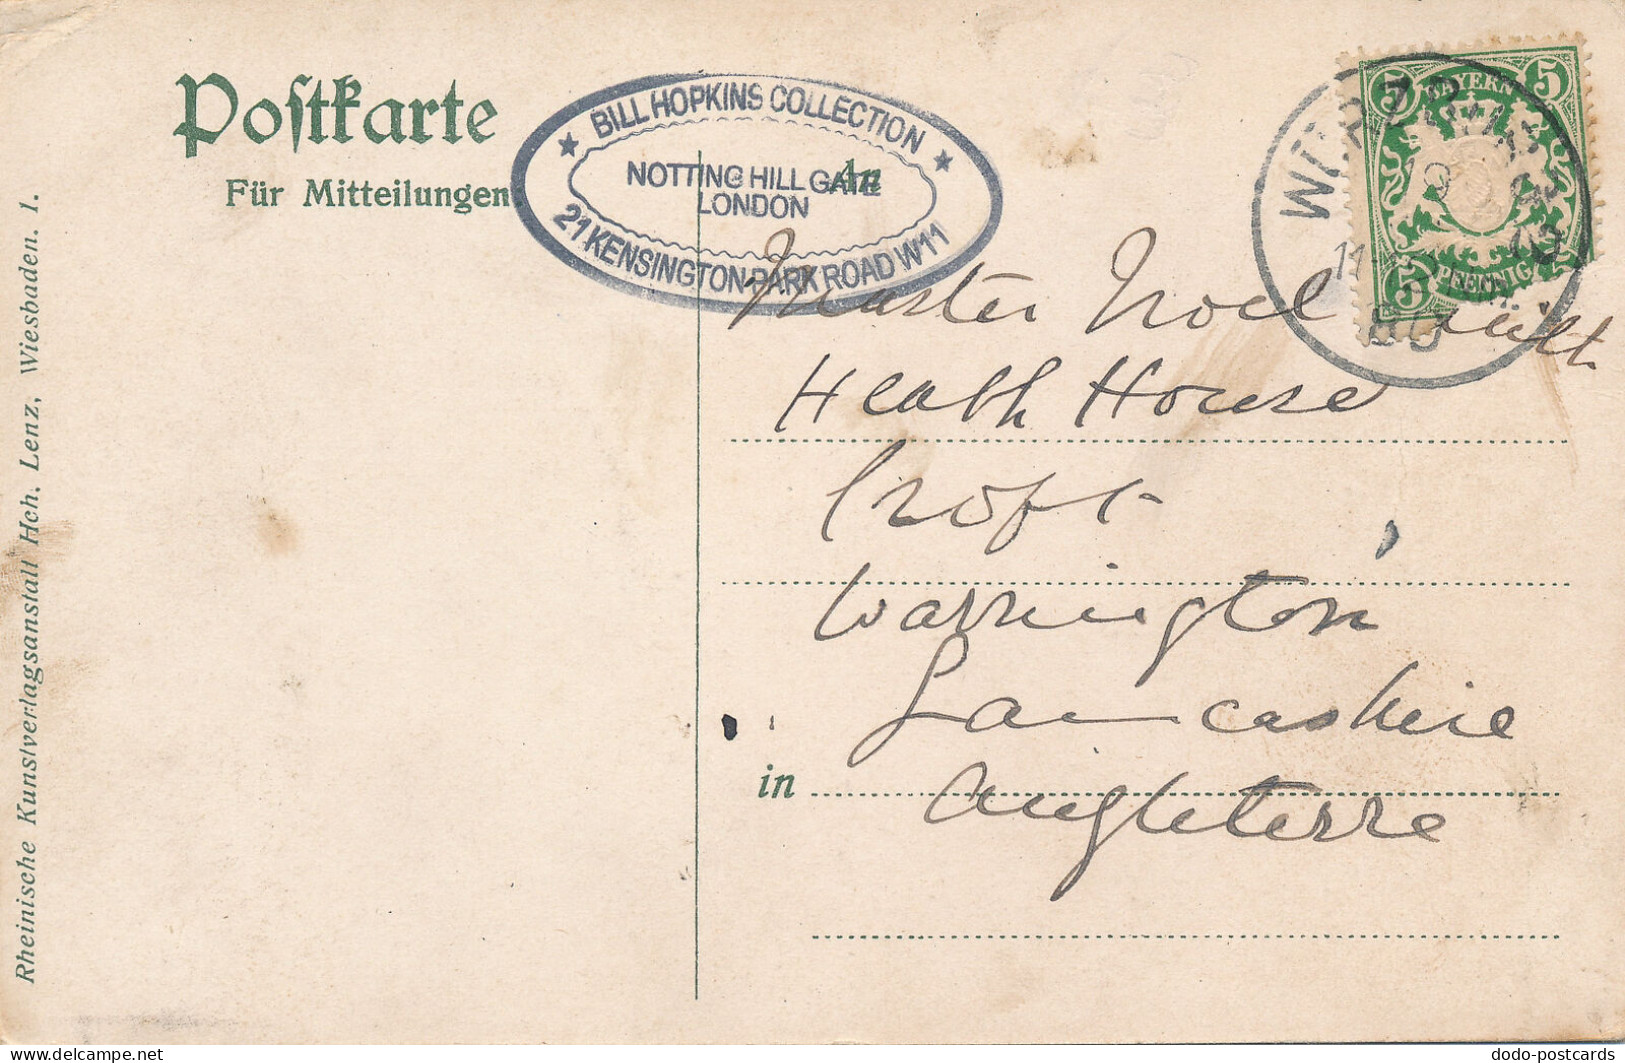 Postkarte
Für Mitteilungen
BILL HOPKINS COLLECTION
NOTTING HILL GATE
LONDON
21 KENSINGTON PARK ROAD W11
An
BAYERN
5 5
5
PFENNIG
Master Noel
Heath House
Croft
Warrington
Lancashire
in
Angleterre
Rheinische Kunstverlagsanstalt Hch. Lenz, Wiesbaden. 1.
delcampe.net
dodo-postcards